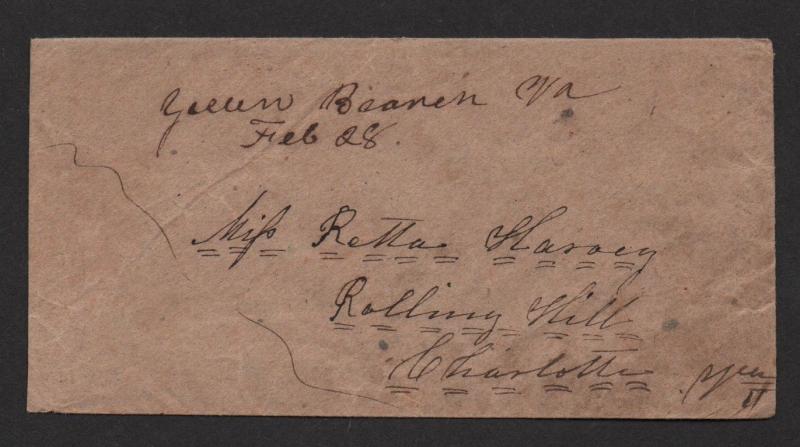 Branch Va
Feb 28.
Miss Retta Harvey
Rolling Hill
Charlotte